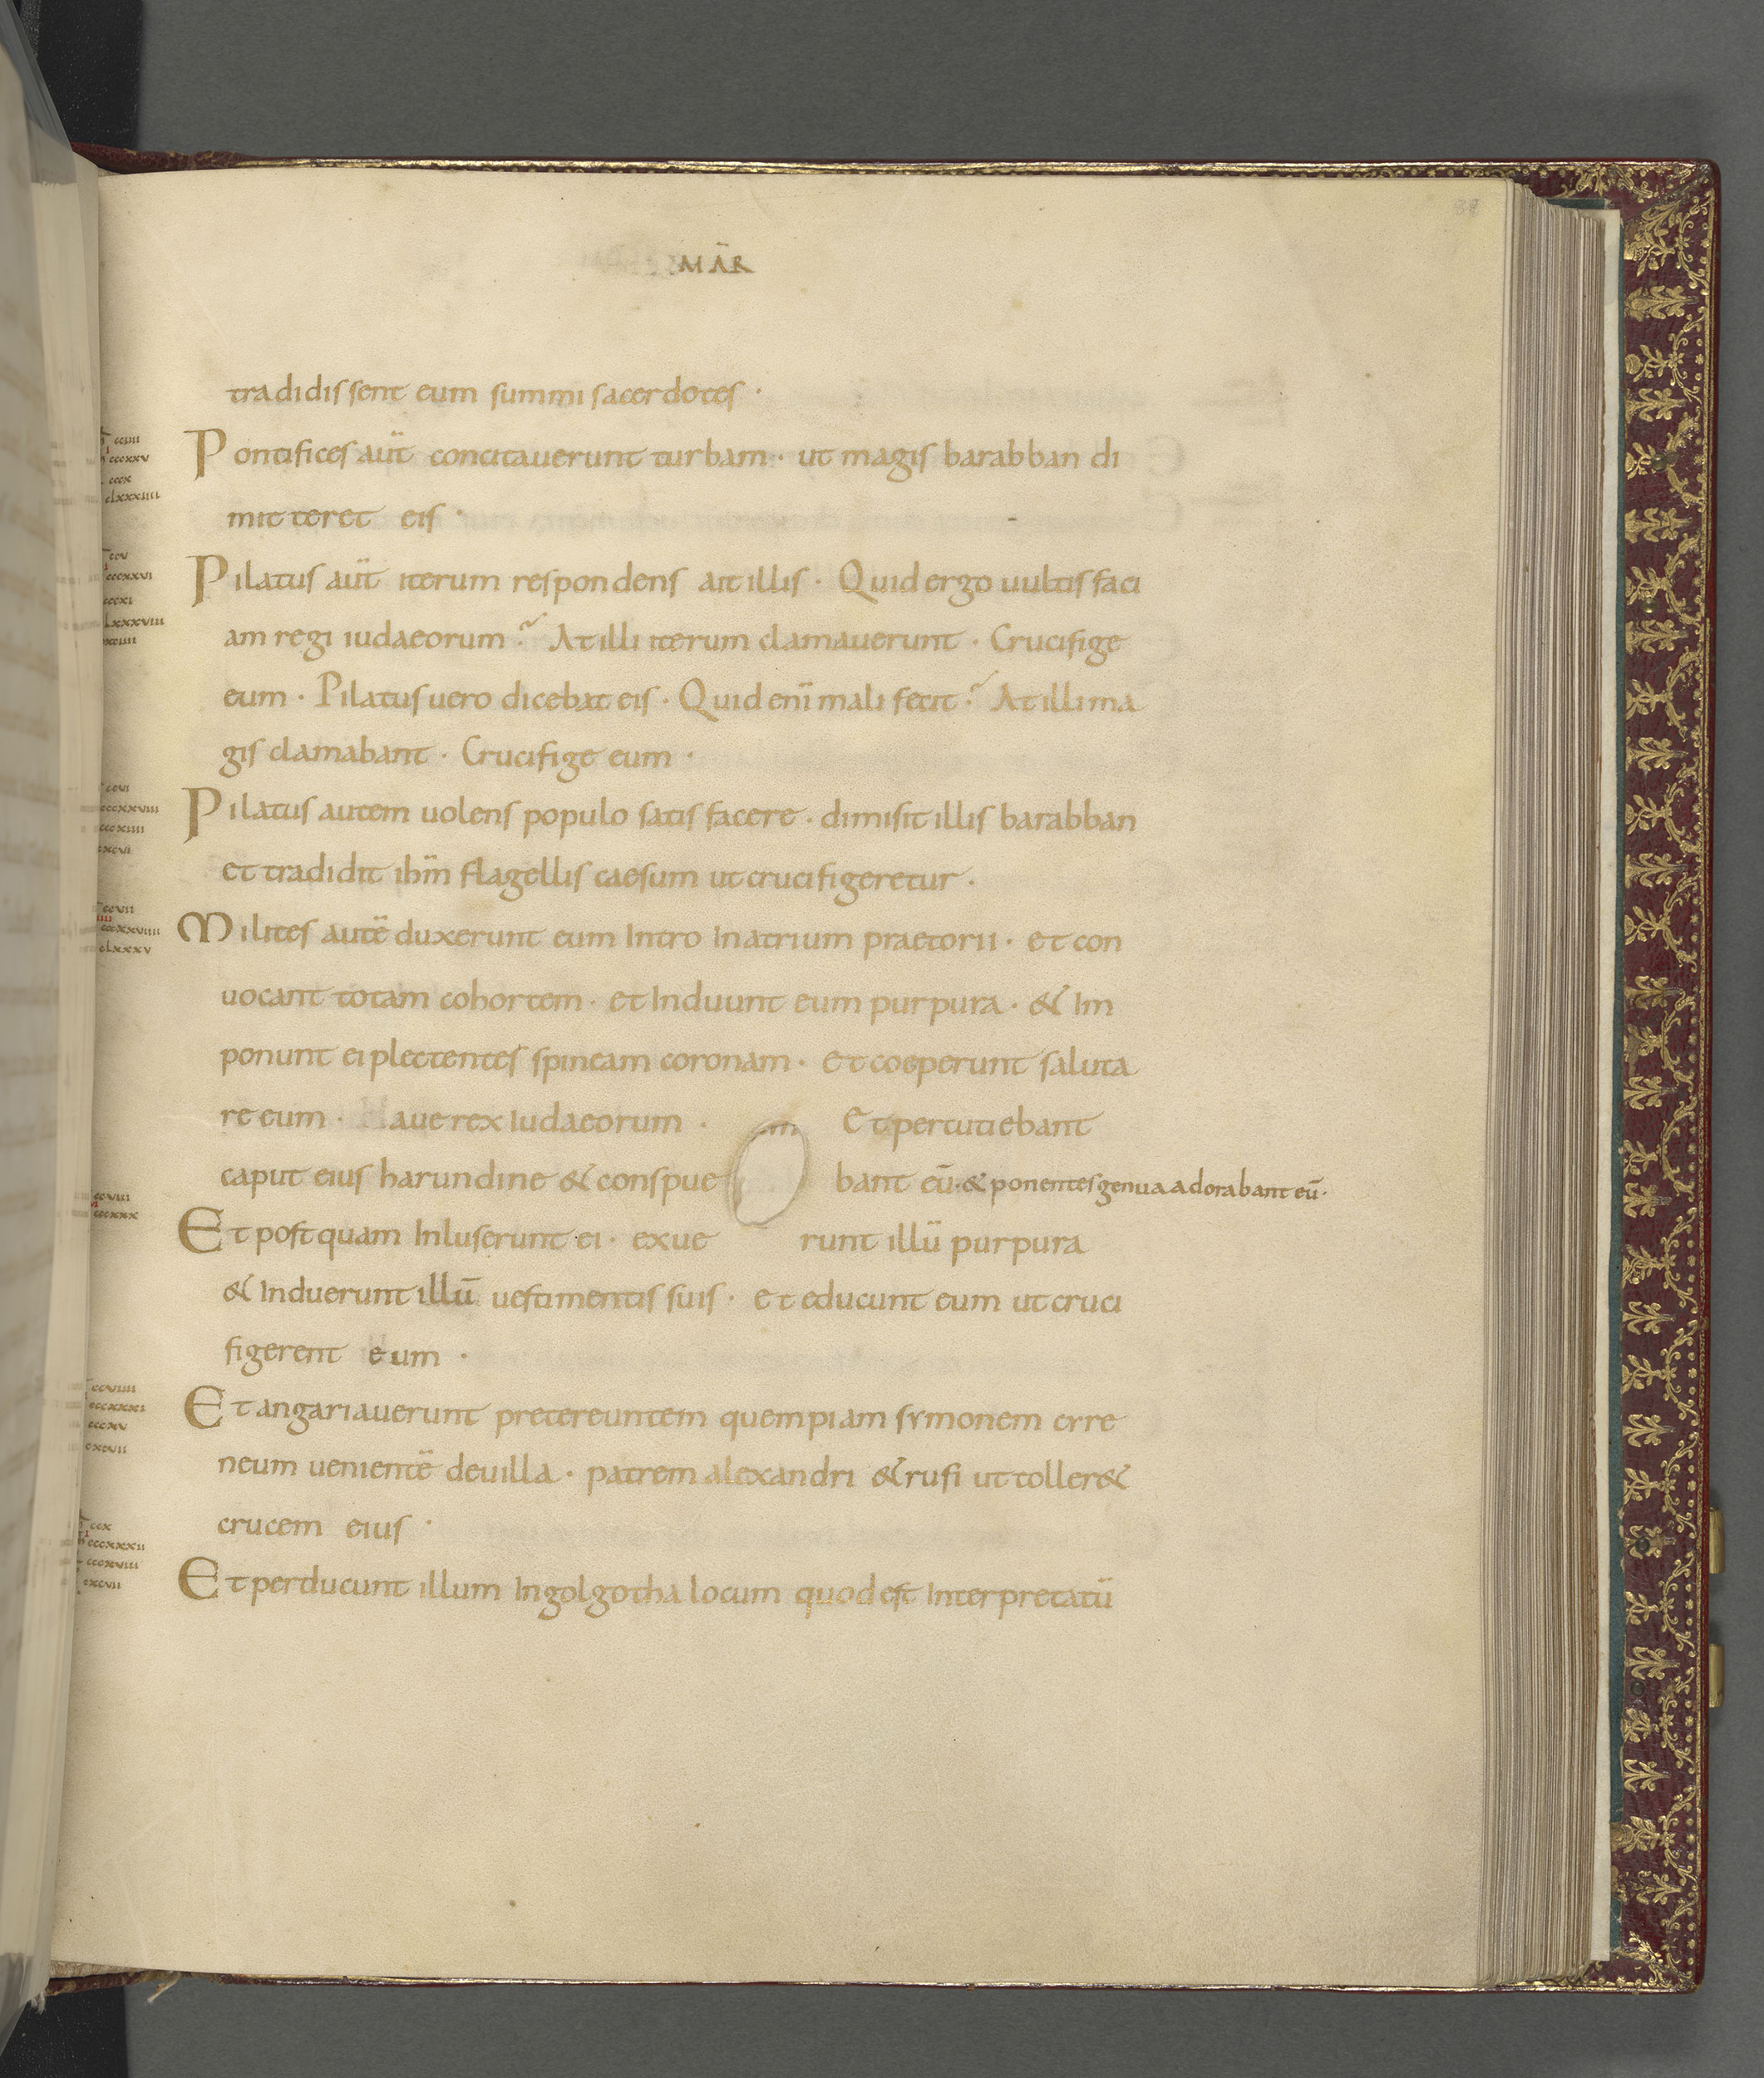 MAR
tradidissent eum summi sacerdotes ·
Pontifices aut̄ concitauerunt turbam · ut magis barabban di
mitteret eis ·
Pilatus aut̄ iterum respondens ait illis · Quid ergo uultis faci
am regi iudaeorum? At illi iterum clamauerunt · Crucifige
eum · Pilatus uero dicebat eis · Quid enī mali fecit? At illi ma
gis clamabant · Crucifige eum ·
Pilatus autem uolens populo satisfacere · dimisit illis barabban
et tradidit ihm̄ flagellis caesum ut crucifigeretur ·
Milites autē duxerunt eum Intro In atrium praetorii · et con
uocant totam cohortem · et Induunt eum purpura · & Im
ponunt ei plectentes spineam coronam · et coeperunt saluta
re eum · aue rex Iudaeorum · Et percutiebant
caput eius harundine & conspue bant eū · & ponentes genua adorabant eū ·
Et postquam Inluserunt ei · exue runt illū purpura
& Induerunt illū uestimentis suis · et educunt eum ut cruci
figerent eum ·
Et angariauerunt pretereuntem quempiam symonem cyre
neum uenientē de uilla · patrem alexandri & rufi ut toller&
crucem eius ·
Et perducunt illum In golgotha locum quod est Interpretatū